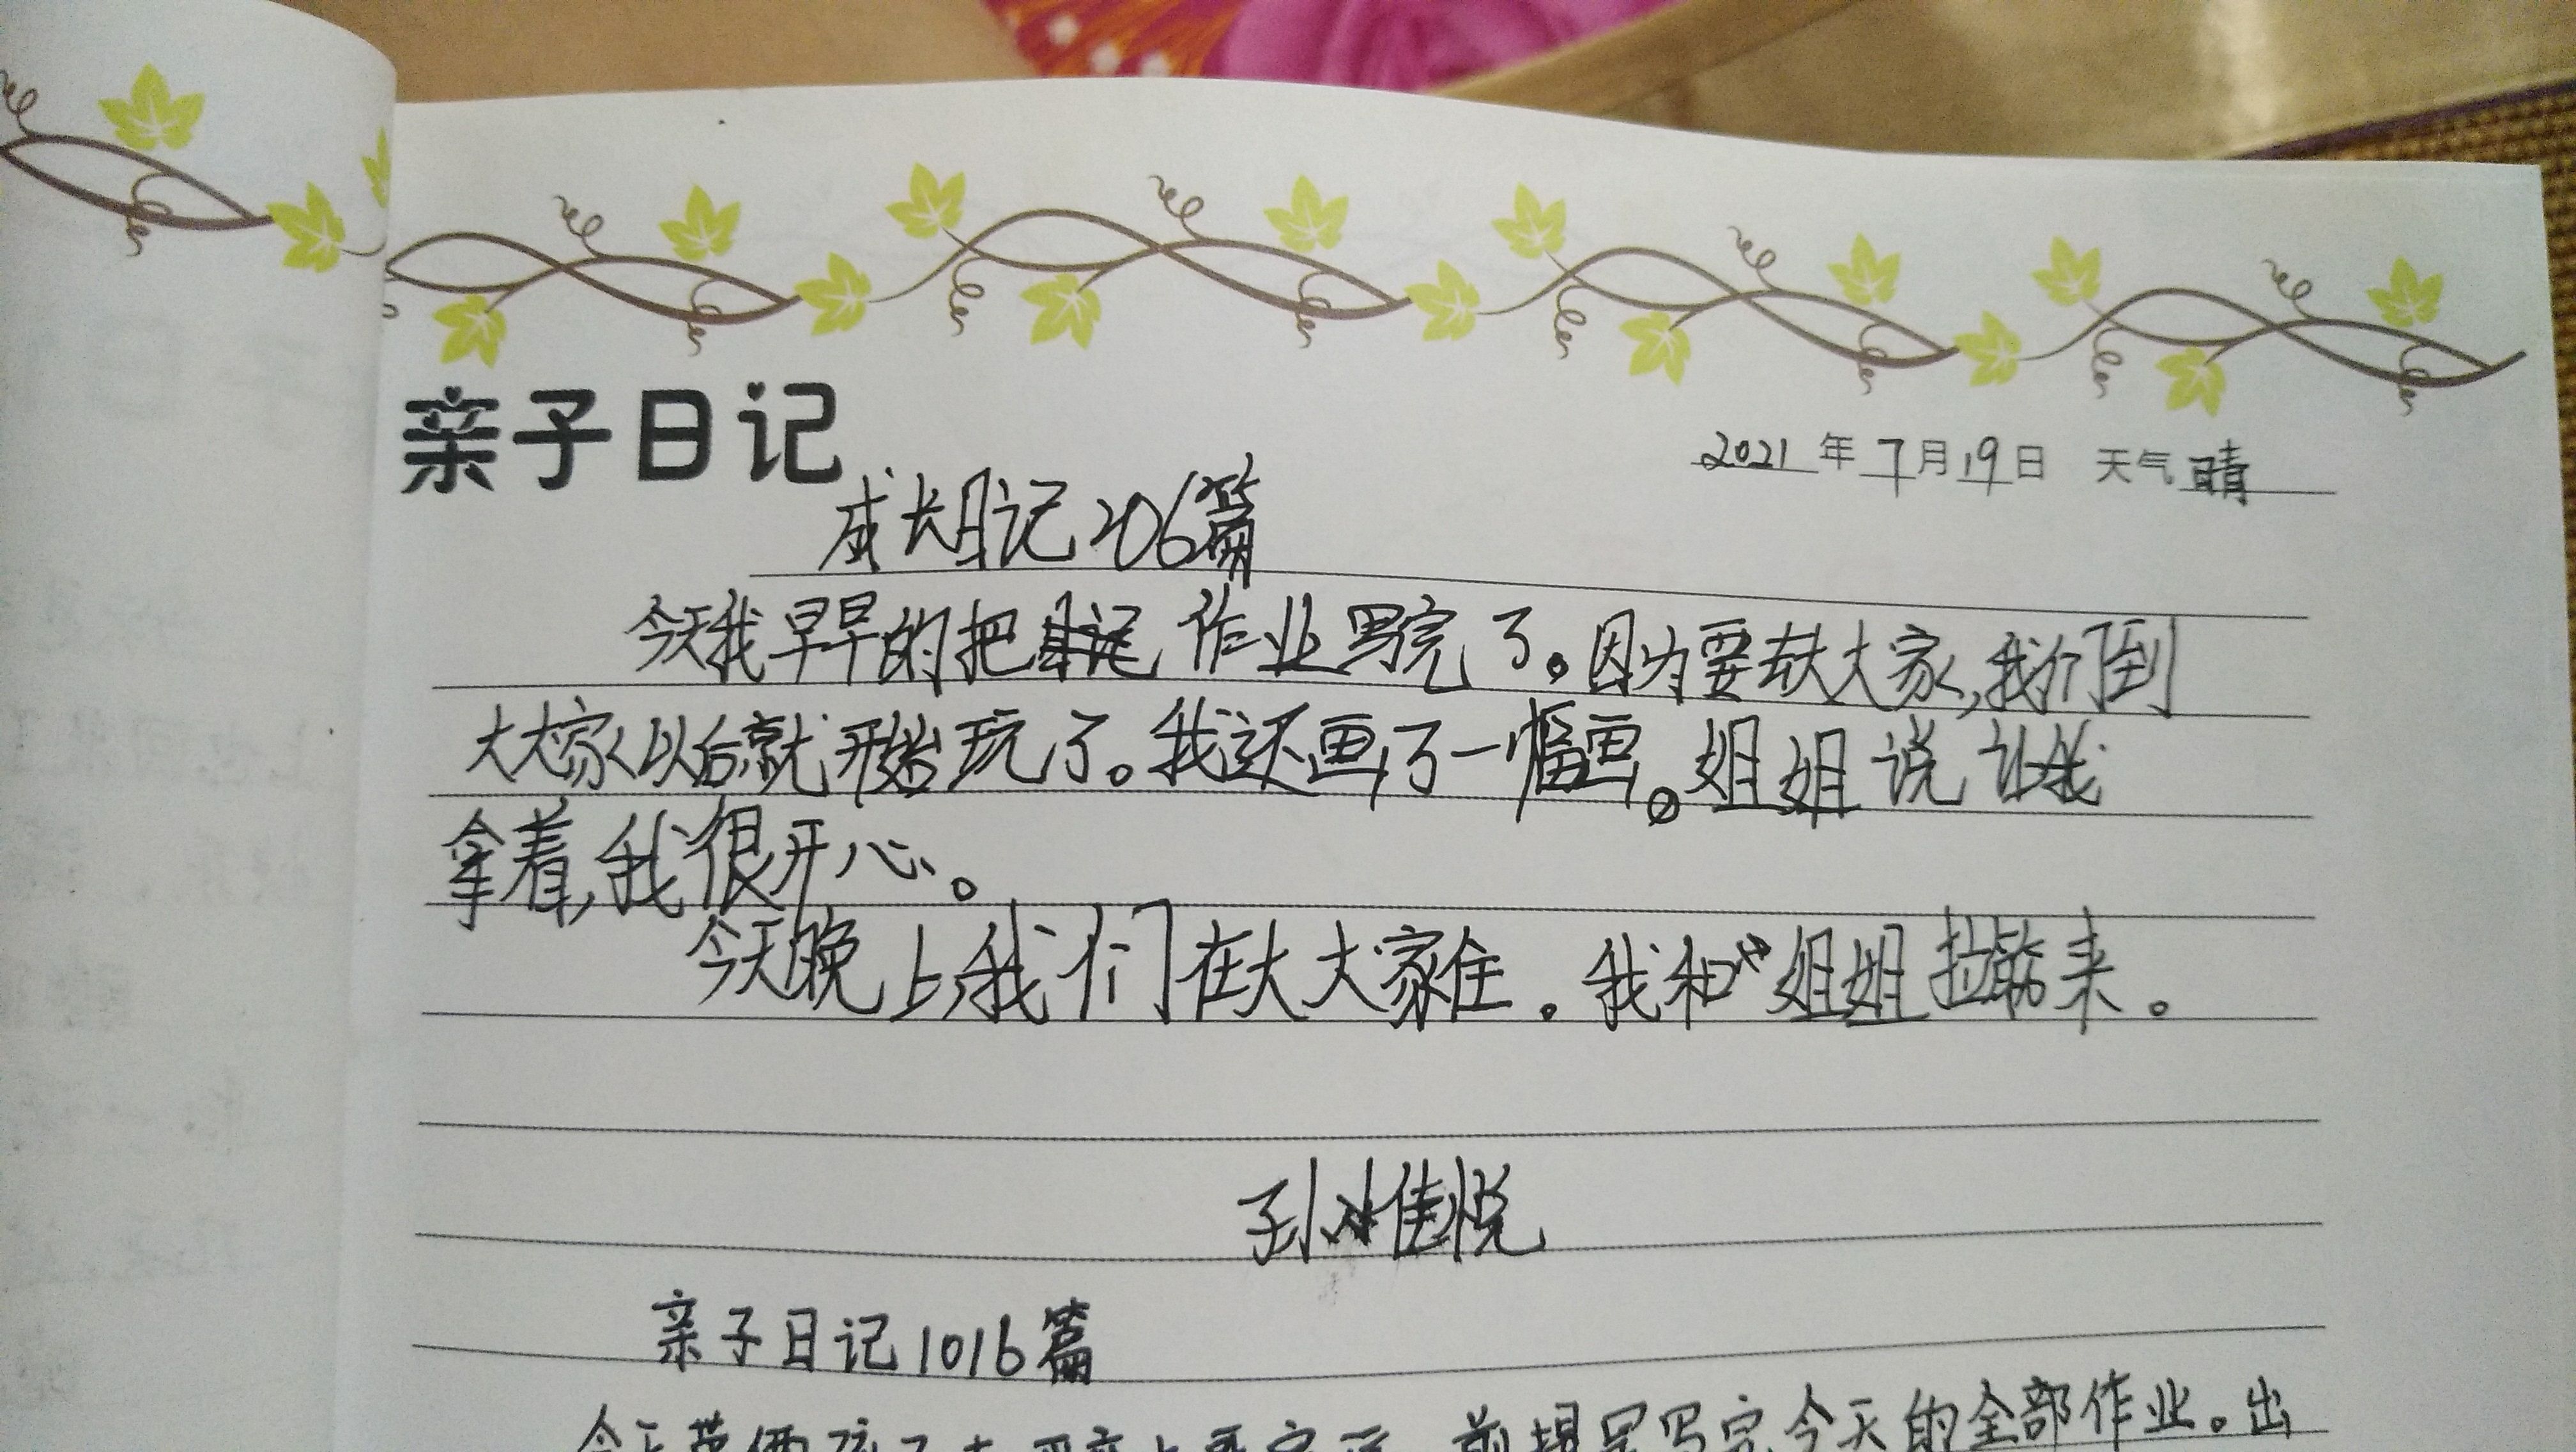 亲子日记
2021年7月19日 天气晴
成长日记206篇
今天我早早的把作业写完了。因为要去大大家,我们到
大大家以后就开始玩了。我还画了一幅画。姐姐说让我
拿着,我很开心。
今天晚上,我们在大大家住。我和姐姐拉筋来。
孙佳悦
亲子日记1016篇
前提是写完今天的全部作业。出